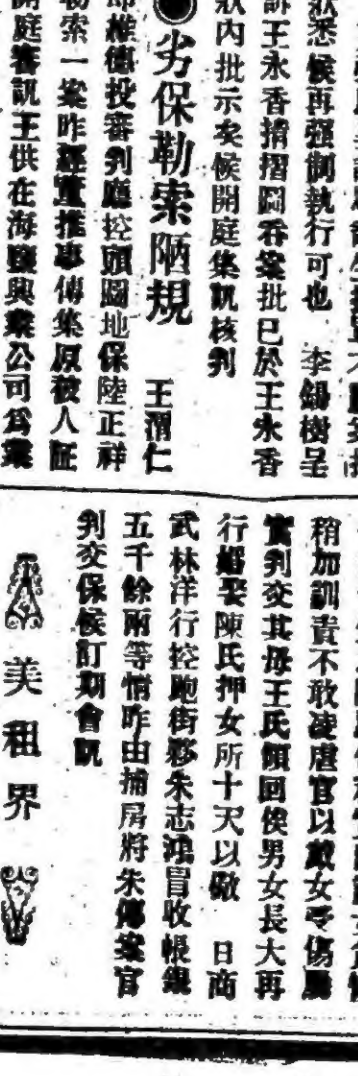 狀悉候再强制執行可也　李錫樹呈
訴王永香揹摺圖吞案批已於王永香
狀内批示矣候開庭集訊核判
●劣保勒索陋規　王渭仁
即維德投審判廳控頭圖地保陸正祥
勒索一案昨經董推事傳集原被人証
開庭審訊王供在海鹽興業公司爲業
稍加訓責不敢凌虐官以戴女受傷屬
實判交其母王氏領回俟男女長大再
行婚娶陳氏押女所十天以儆　日商
武林洋行控跑街夥朱志鴻冒收帳銀
五千餘兩等情昨由捕房將朱傳案官
判交保候訂期會訊
美租界